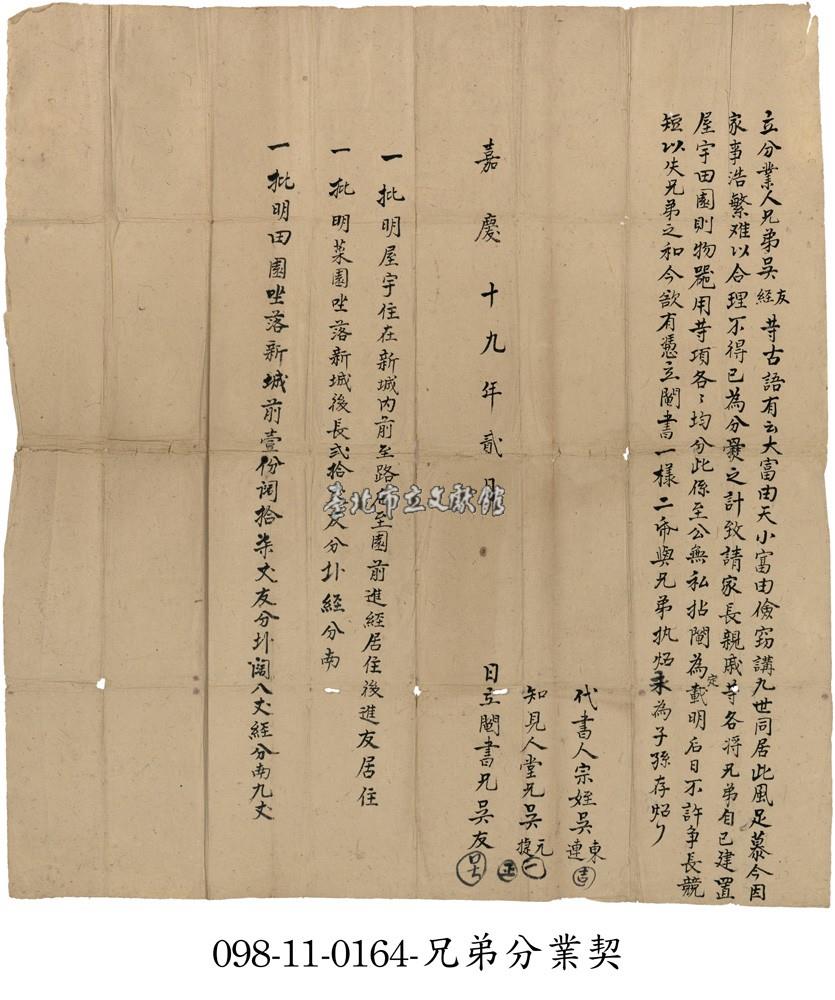 立分業人兄弟吳友經等古語有云大富由天小富由儉窃講九世同居此風足慕今因
家事浩繁难以合理不得已為分爨之計致請家長親戚等各将兄弟自己建置
屋宇田園則物器用等項各〻均分此係至公無私拈鬮為定載明后日不許争長競
短以失兄弟之和今欲有憑立鬮書一樣二帋與兄弟执炤永為子孫存炤
代書人宗姪吳東連
知見人堂兄吳元捷
嘉慶十九年貳月 日立鬮書兄吳友
一批明屋宇住在新城内前至路后至園前進經居住後進友居住
一批明菜園坐落新城後長弍拾 友分北經分南
一批明田園坐落新城前壹份闊拾柒丈友分北闊八丈經分南九丈
臺北市立文獻館
098-11-0164-兄弟分業契